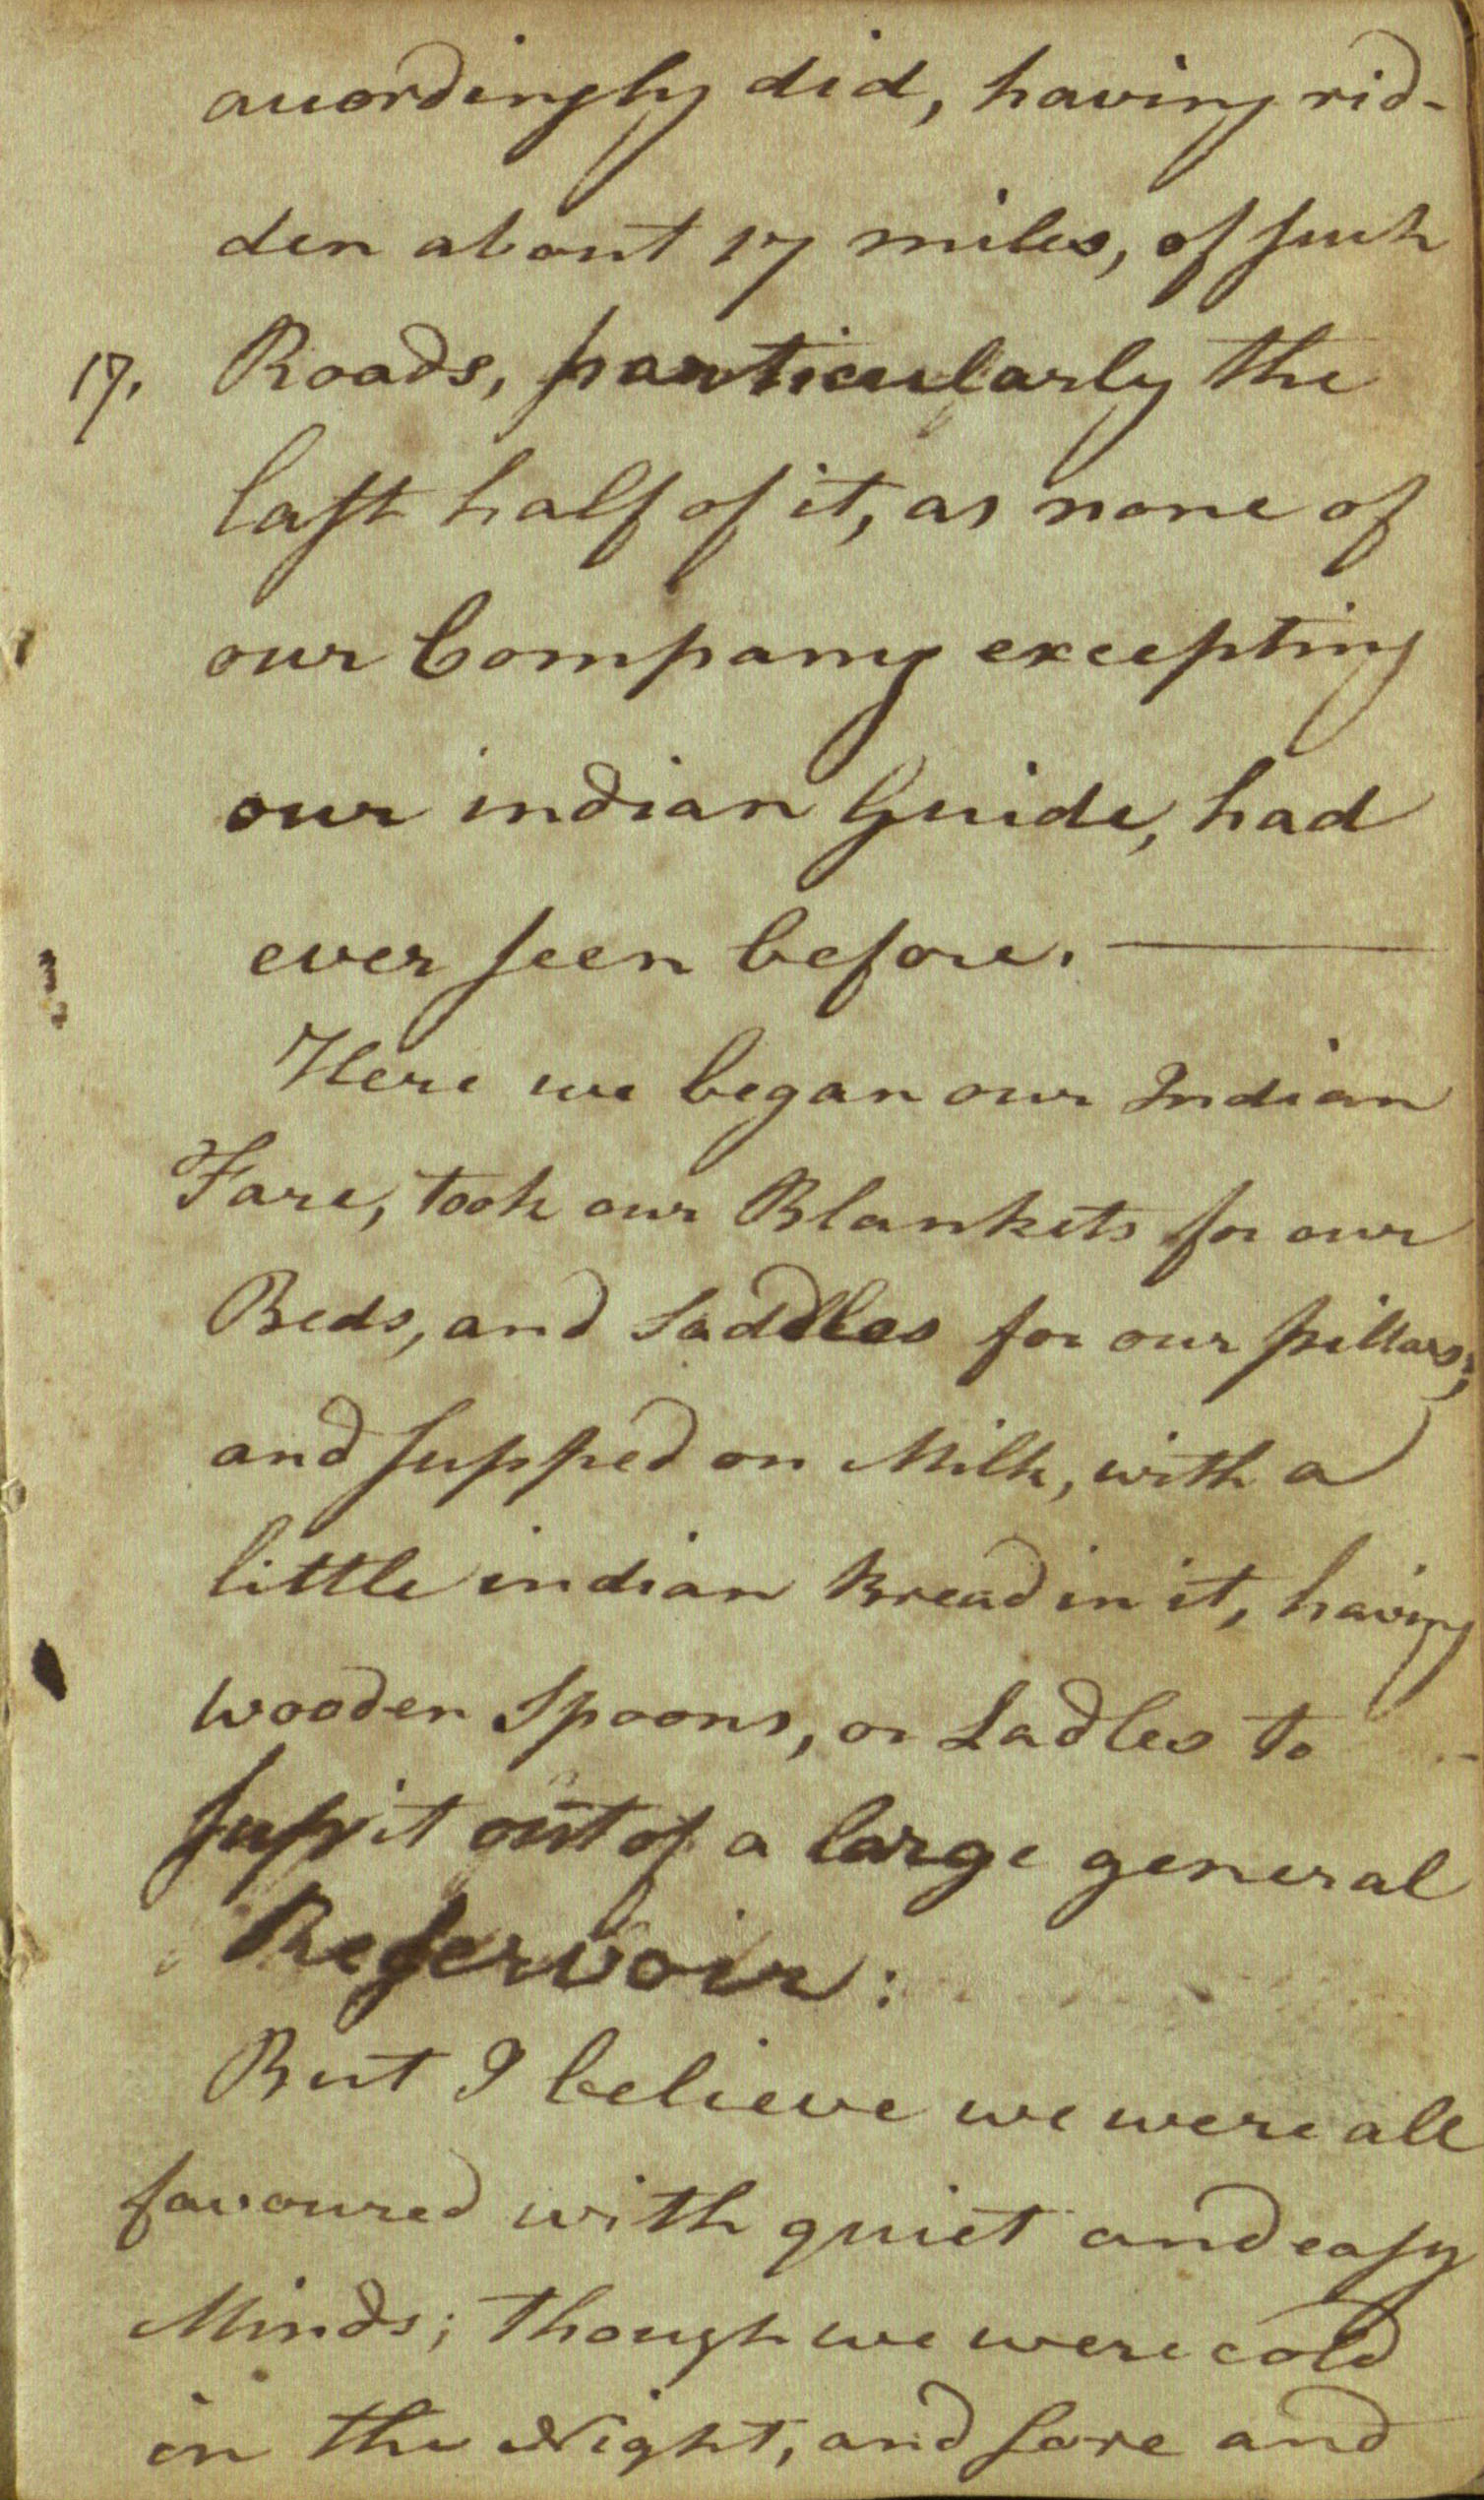 accordingly did, having rid-
den about 17 miles, of such
17. Roads, particularly the
last half of it, as none of
our Company excepting
our indian Guide, had
ever seen before. —
Here we began our Indian
Fare, took our Blankets for our
Beds, and Saddles for our pillars;
and supped on Milk, with a
little indian Bread in it, having
wooden Spoons, or Ladles to
sup it out of a large general
Reservoir:
But I believe we were all
favoured with quiet and easy
Minds; though we were cold
in the Night, and sore and